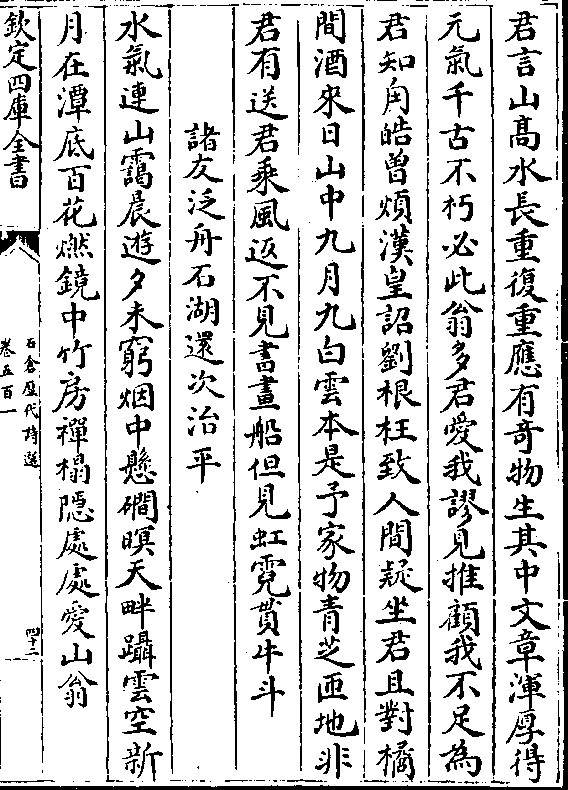 君言山髙水長重復重應有竒物生其中文章渾厚得
元氣千古不朽必此翁多君愛我謬見推顧我不足為
君知甪皓曽煩漢皇詔劉根枉致人間疑坐君且對橘
間酒來日山中九月九白雲本是予家物青芝匝地非
君有送君乘風返不見書畫船但見虹霓貫牛斗
諸友泛舟石湖還次治平
水氣連山靄晨遊夕未窮烟中懸磵暝天畔躡雲空新
月在潭底百花燃鏡中竹房禪榻隱處處愛山翁
欽定四庫全書
石倉歴代詩選
卷五百一
四十三